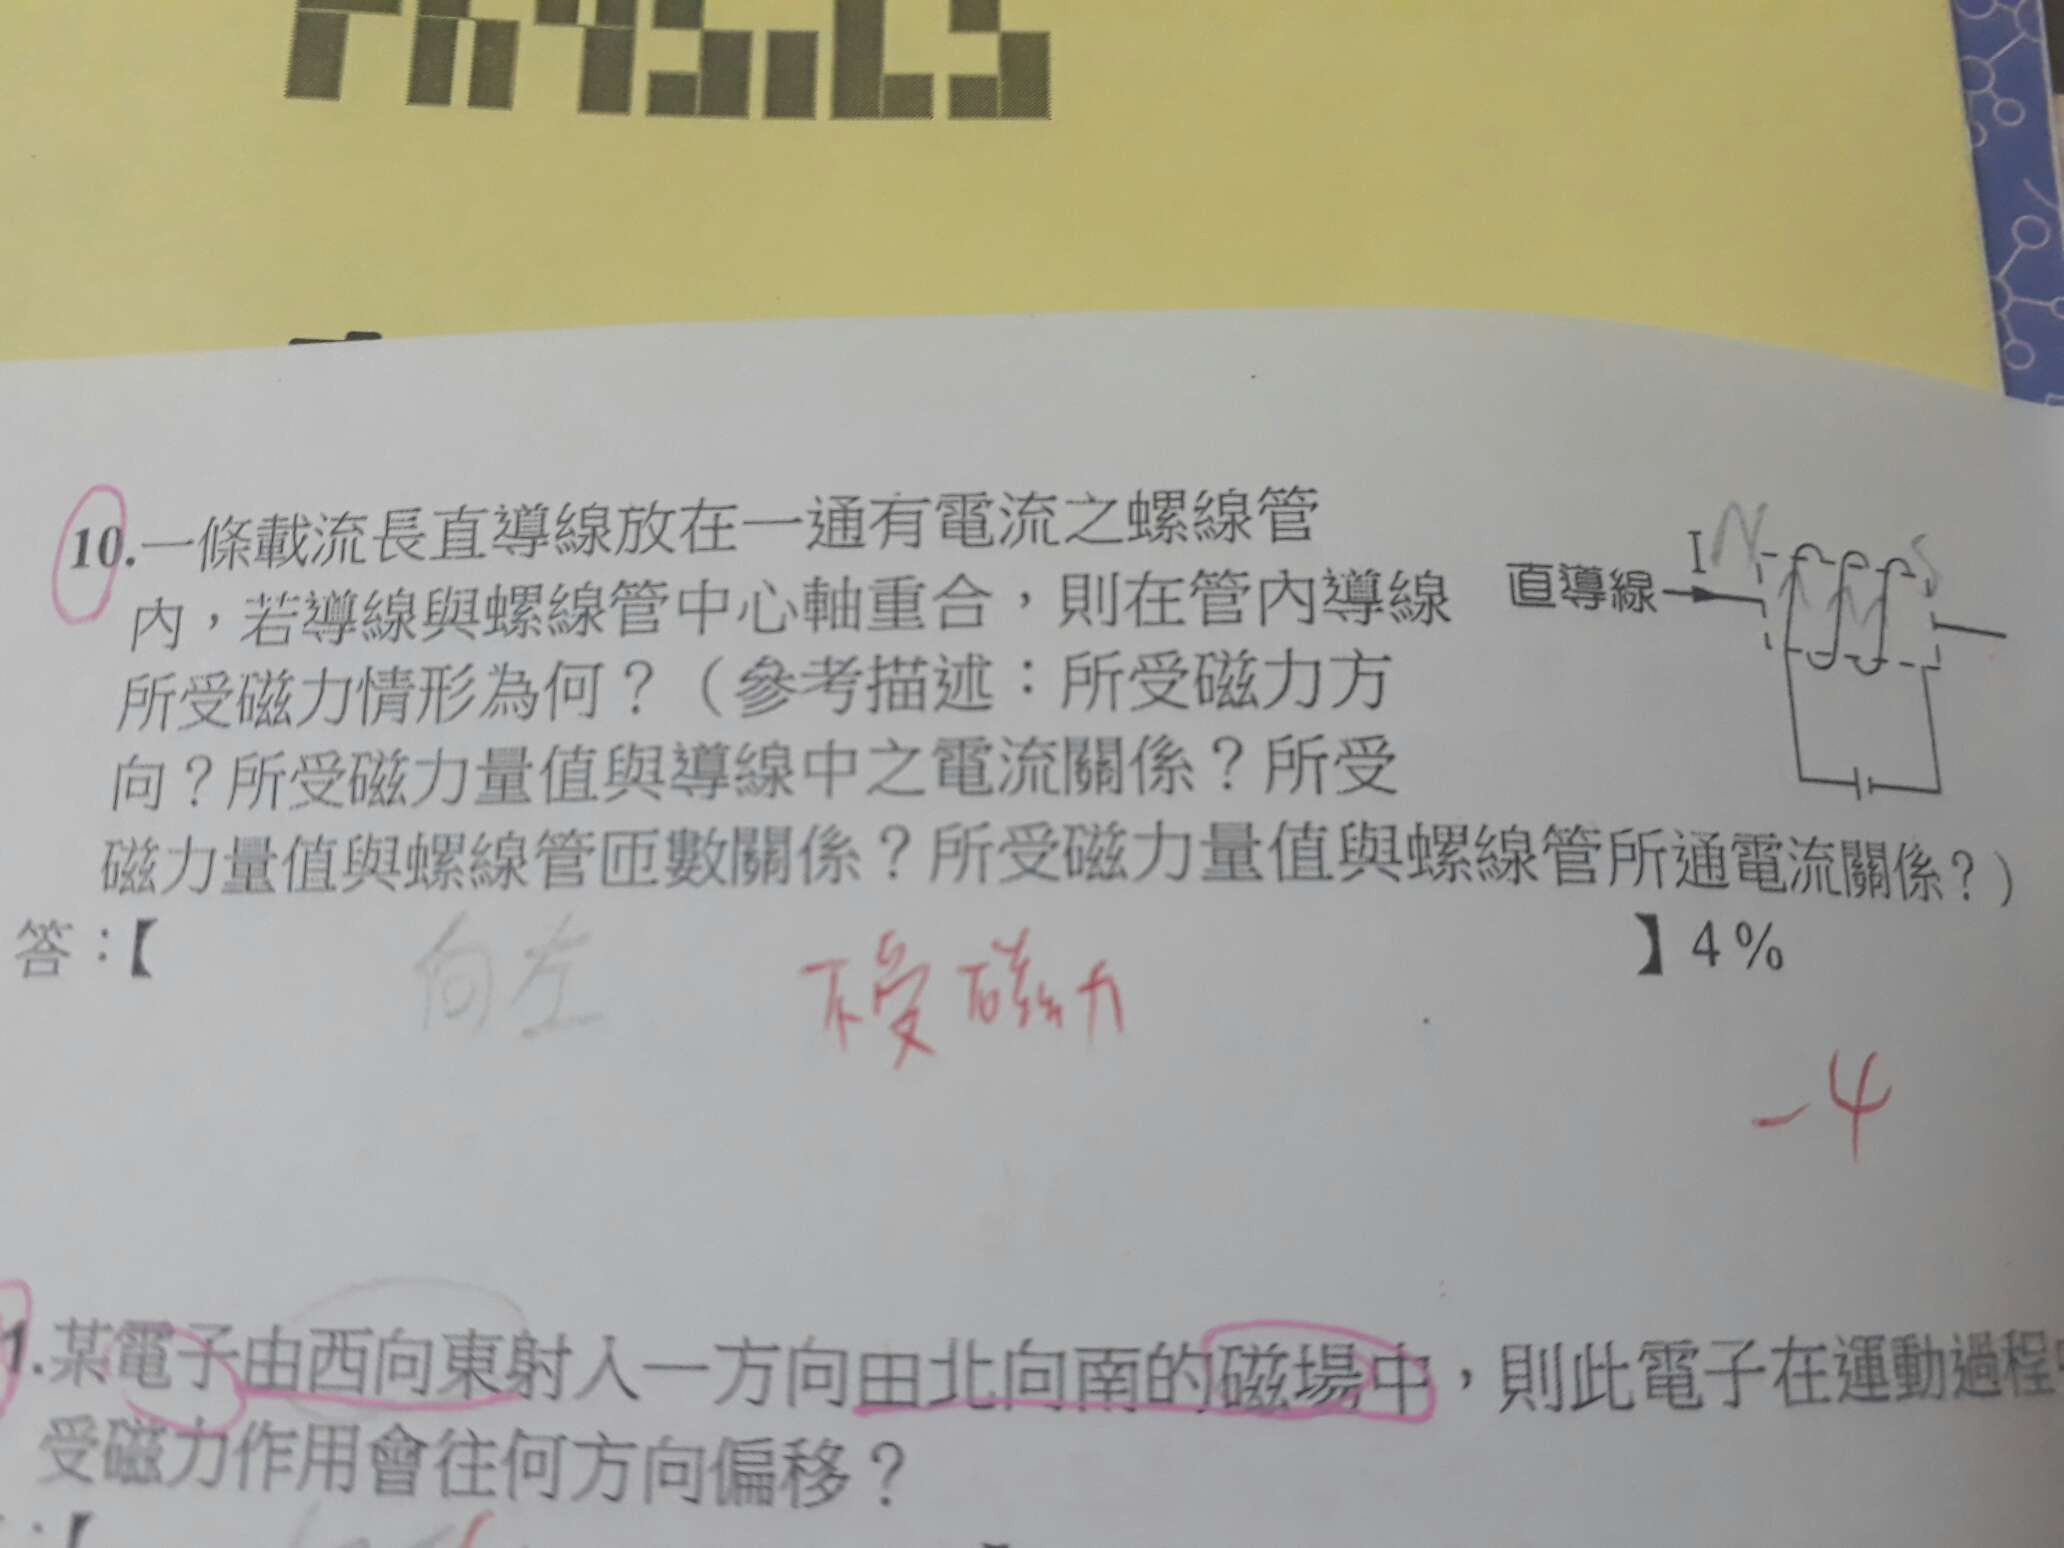 PHYSICS
10.一條載流長直導線放在一通有電流之螺線管
內，若導線與螺線管中心軸重合，則在管內導線
所受磁力情形為何？（參考描述：所受磁力方
向？所受磁力量值與導線中之電流關係？所受
磁力量值與螺線管匝數關係？所受磁力量值與螺線管所通電流關係？）
I N S
直導線
答：【 向左 不受磁力 】4%
-4
1.某電子由西向東射入一方向由北向南的磁場中，則此電子在運動過程
受磁力作用會往何方向偏移？
：【